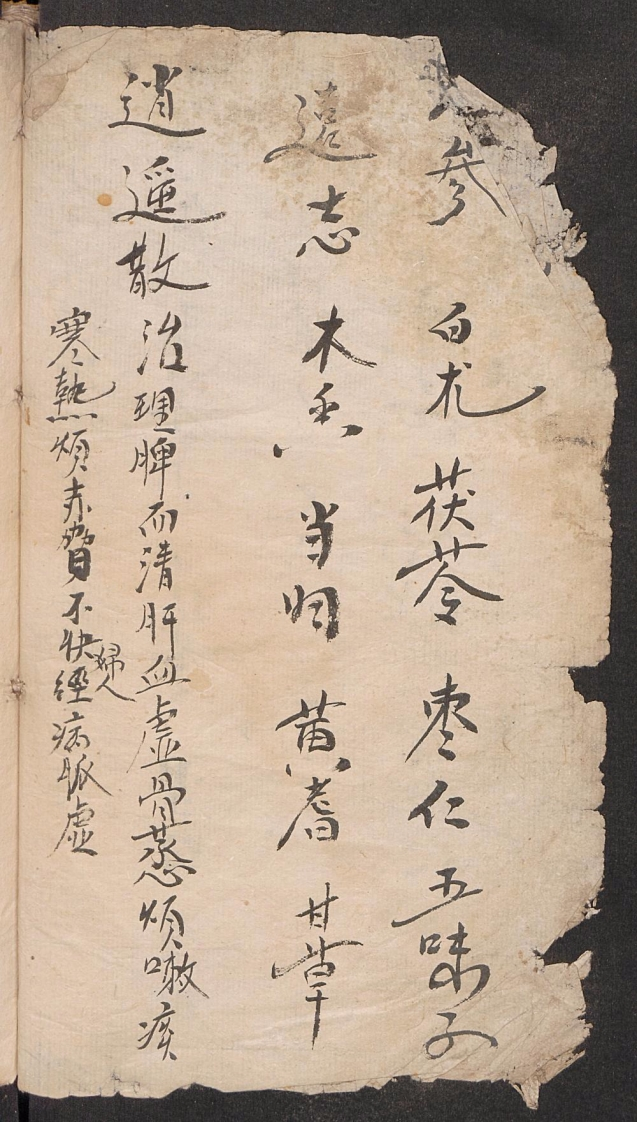 人参 白朮 茯苓 枣仁 五味子
遠志 木香 当归 黄耆 甘草
逍遥散治理脾而清肝血虚骨蒸烦嗽痰
寒熱煩 不快婦人經病脈虚